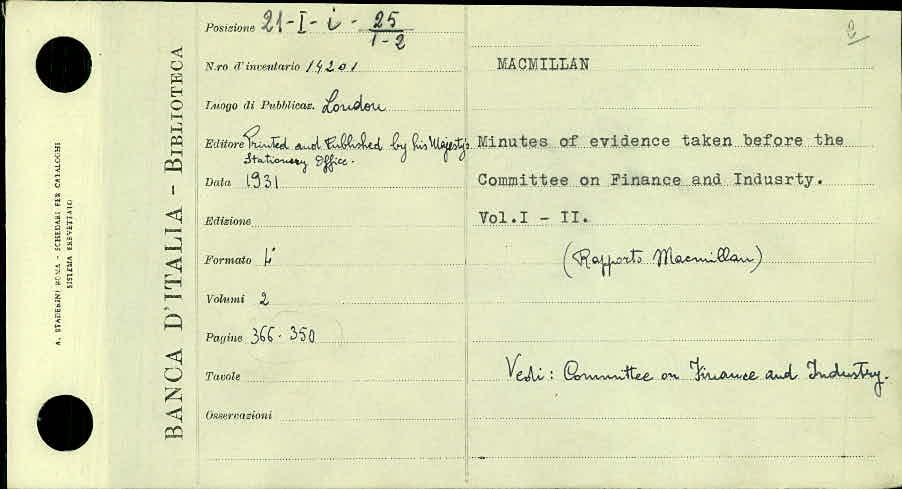 A. STADERINI ROMA - SCHEDARI PER CATALOGHI
SISTEMA BREVETTATO
BANCA D'ITALIA - BIBLIOTECA
Posizione 21-I-i - 25/1-2
N.ro d'inventario 14201
Luogo di Pubblicaz. London
Editore Printed and Published by his Majesty's
Stationery Office.
Data 1931
Edizione
Formato 4°
Volumi 2
Pagine 366-350
Tavole
Osservazioni
MACMILLAN
Minutes of evidence taken before the
Committee on Finance and Indusrty.
Vol.I - II.
(Rapporto Macmillan)
Vedi: Committee on Finance and Industry.